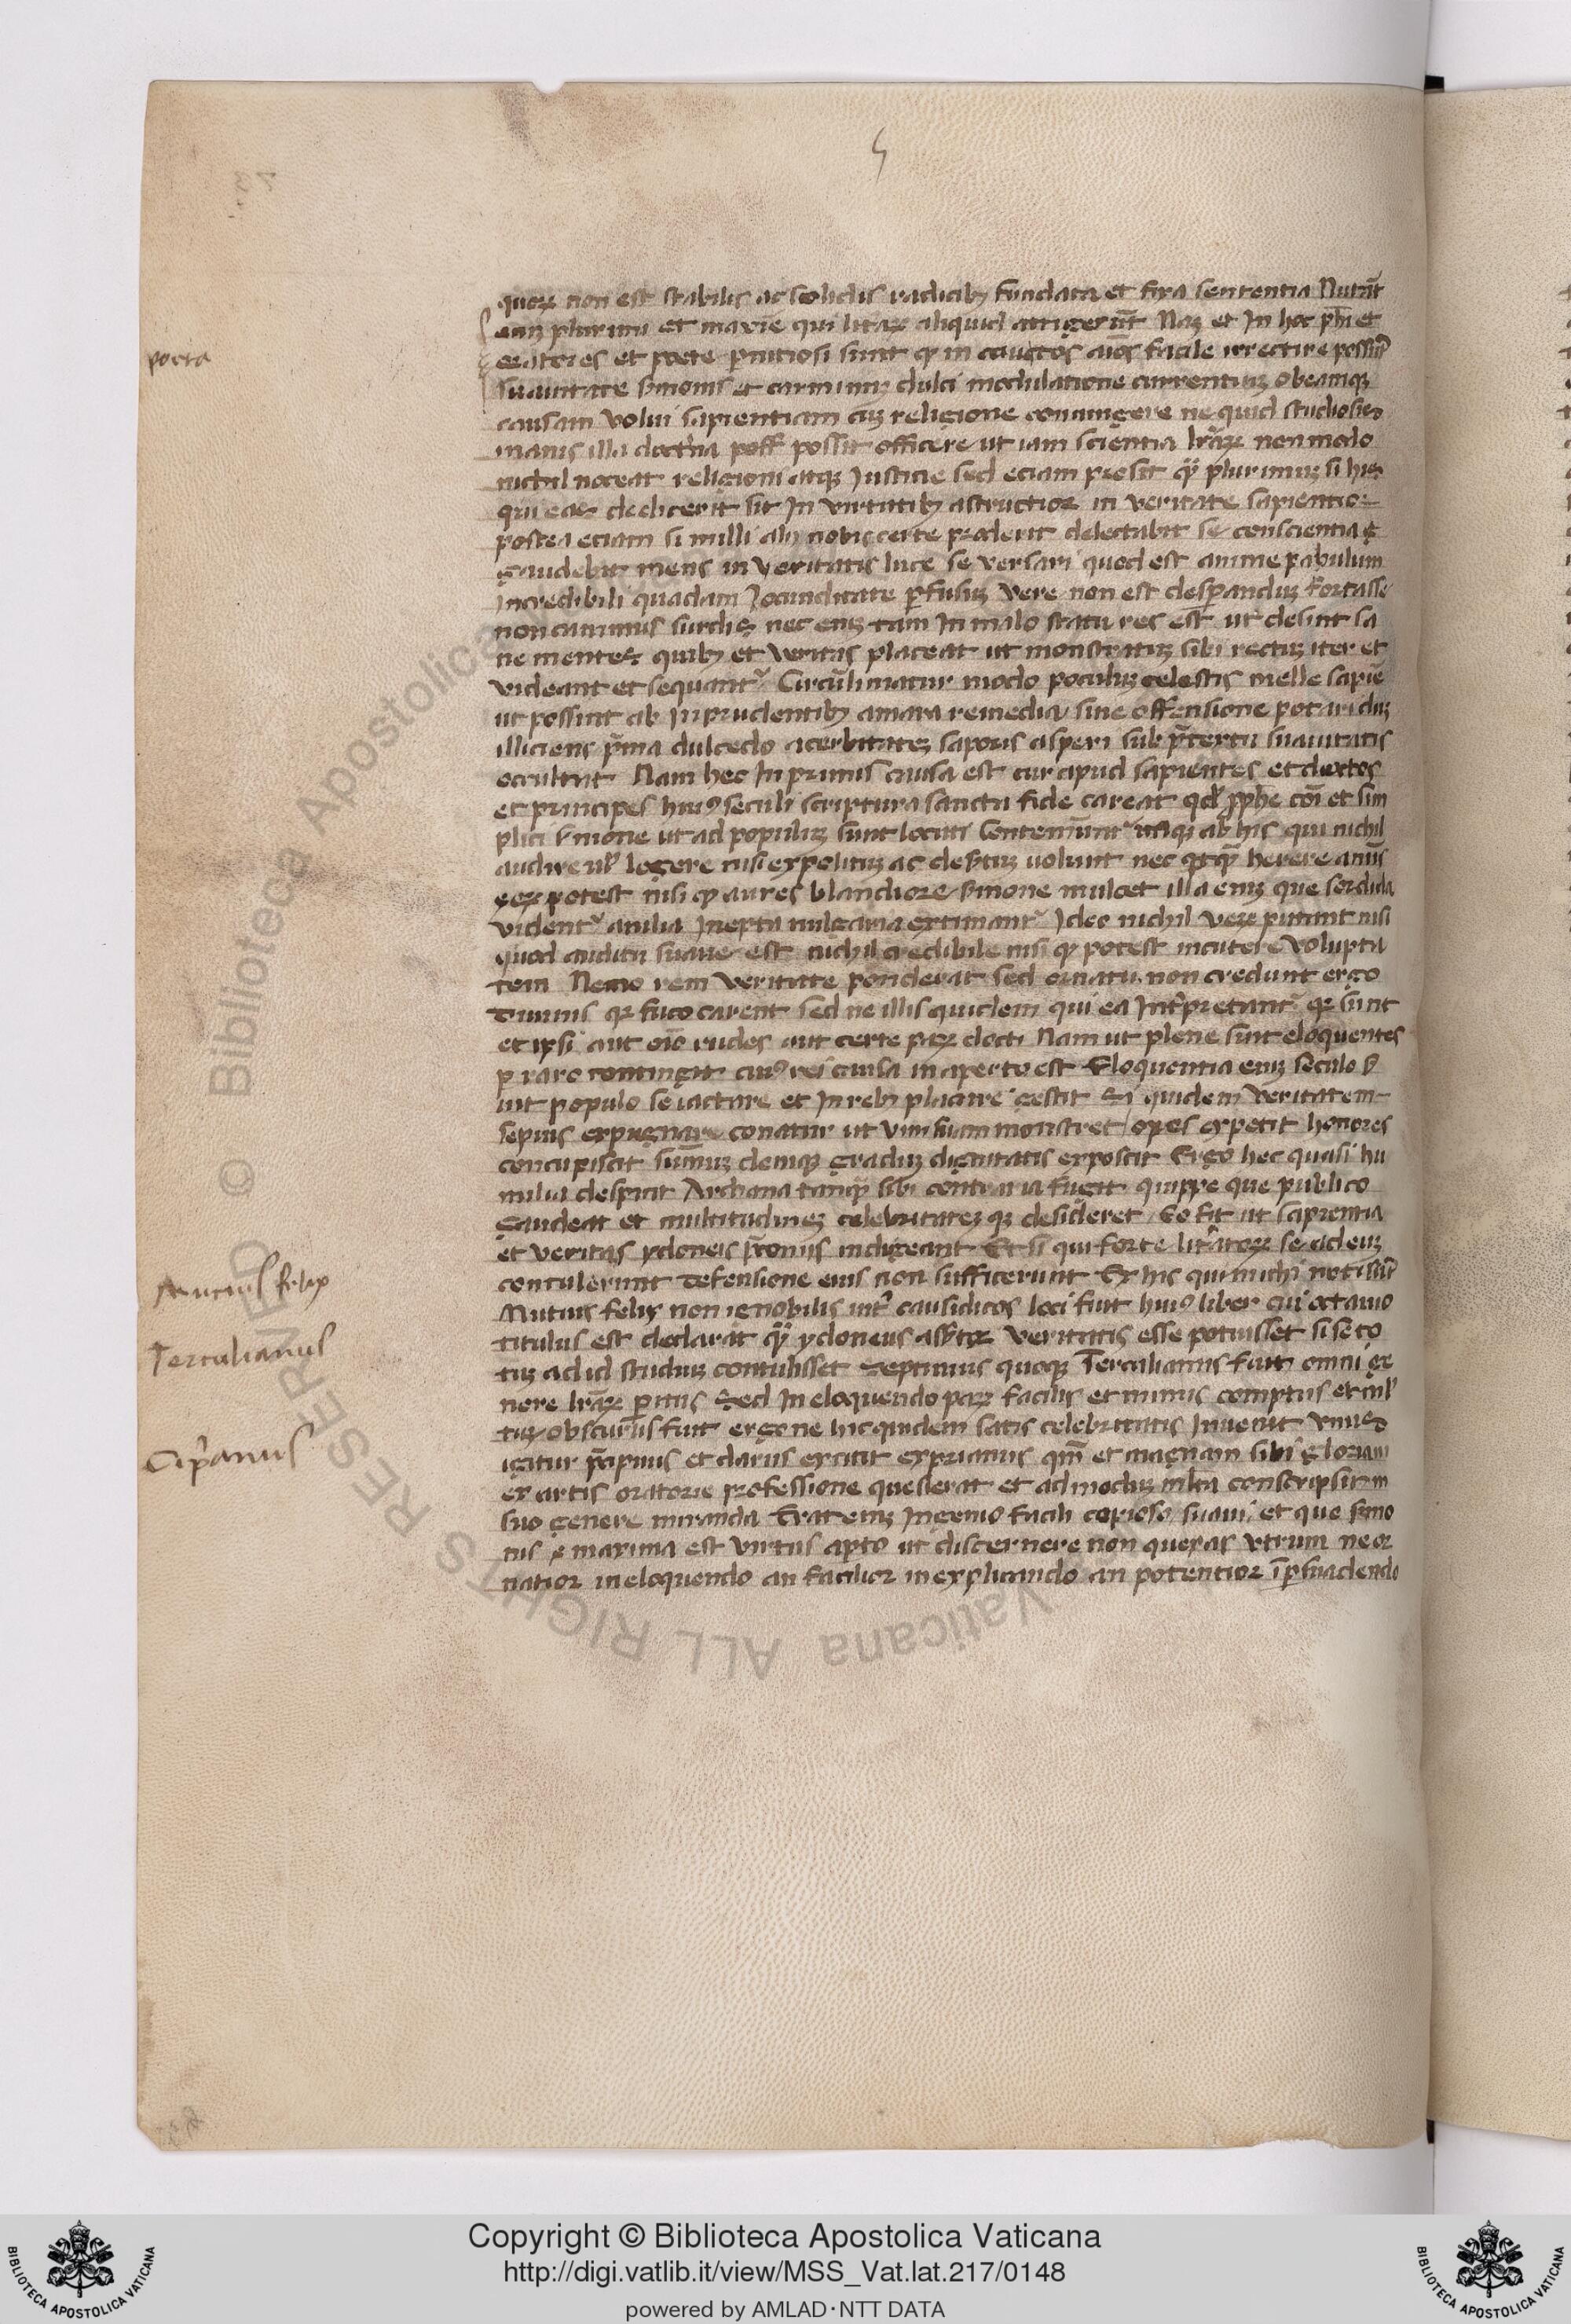 5
quoꝝ non est stabilis ac solidis radicibꝫ fundata et fixa sententia Nutāt
eniꝫ plurimi et maxīe qui litaꝝ aliquid attigerūt Naꝫ et In hoc ph̄i et
poeta
oratores et poete pernitiosi sunt qꝫ in cauctos aīos facile irrectire possūt
suauitate sermonis et carminuꝫ dulci modulatione currentiuꝫ Obeamqꝫ
causam volui sapientiam cuꝫ religione coniungere ne quid studiosis
inanis illa doctrina poss possit officere ut iam scientia lrāꝝ non modo
nichil noceat religioni atqꝫ Iusticie sed eciam prosit qꝫ plurimuꝫ si his
qui eas dedicerit sit In virtutibꝫ astructior in veritate sapientior
postea eciam si nulli alij nobis certe proderit delectabit se conscientia
gaudebit mens in veritatis luce se versari quod est anime pabulum
Incredibili quadam Iocunditate perfusuꝫ Vere non est desperanduꝫ fortasse
non canimus surdis nec eniꝫ tam In malo statu res est ut desint sa
ne mentes quibꝫ et veritas placeat ut monstratuꝫ sibi rectuꝫ iter et
videant et sequantr Circūlinatur modo poculuꝫ celestis melle sapīe
ut possint ab Inprudentibꝫ amara remedia sine offensione potari duꝫ
illiciens prima dulcedo acerbitateꝫ saporis asperi sub pretextu suauitatis
occultat Nam hec In primis causa est cur apud sapientes et doctos
et principes huiꝰ seculi scriptura sancta fide careat qd prophe coi et sim
plici sermone ut ad populuꝫ sunt locuti Contemūntr itaqꝫ ab his qui nichil
audire ul legere nisi expolituꝫ ac desertuꝫ uolunt nec qtqꝫ herere anīis
eoꝝ potest nisi qꝫ aures blandiore sermone mulcet illa eniꝫ que sordida
videntr anilia Inepta uulgaria extimantr Ideo nichil veꝝ putant nisi
quod auditu suaue est nichil credibile nisi qꝫ potest incutere volupta
tem Nemo rem veritate ponderat sed ornatu non credunt ergo
Diuinis qꝛ fuco carent sed ne illis quidem qui ea Interpretantr qꝛ sunt
et ipsi aut oīo rudes aut certe paꝝ docti Nam ut plene sint eloquentes
per raro contingit cuiꝰ rei causa in aperto est Eloquentia eniꝫ seculo ser
uit populo se iactare et In rebꝫ placare gestit Si quidem veritatem
sepius expugnare conatur ut vim suam monstret opes expetit honores
concupiscit summuꝫ deniqꝫ graduꝫ dignitatis exposcit Ergo hec quasi hu
milia despicit Archana tanqꝫ sibi contraria fugit quippe que publico
gaudeat et multitudineꝫ celebritateꝫ qꝫ desideret Eo fit ut sapientia
et veritas ydoneis preconiis indigeant Et si qui forte litratoꝝ se ad eaꝫ
Mucius felix
contulerunt defensione eius non sufficerunt Ex his qui michi noti sūt
Mutius felix non ignobilis inter causidicos loci fuit huiꝰ liber cui octauio
Tertulianus
titulus est declarat qꝫ ydoneus assertor veritatis esse potuisset si se to
tuꝫ ad id studiuꝫ contulisset Septimius quoqꝫ Tertulianus fuit omni ge
nere lrāꝝ peritus Sed In eloquendo paꝝ facilis et minus comptus et mul
tuꝫ obscurus fuit ergo ne hic quidem satis celebritatis Inuenit vnus
Ciprianus
igitur precipuus et clarus extitit cyprianus qm̄ et magnam sibi gloriam
ex artis oratorie professione quesierat et ad moduꝫ multa conscripsit in
suo genere miranda Erat eniꝫ Ingenio facili copioso suaui et que sermo
nis maxima est virtus apto ut discernere non queras vtrum ne or
natior in eloquendo an facilior in explicando an potentior ī persuadendo
Copyright © Biblioteca Apostolica Vaticana
http://digi.vatlib.it/view/MSS_Vat.lat.217/0148
powered by AMLAD·NTT DATA